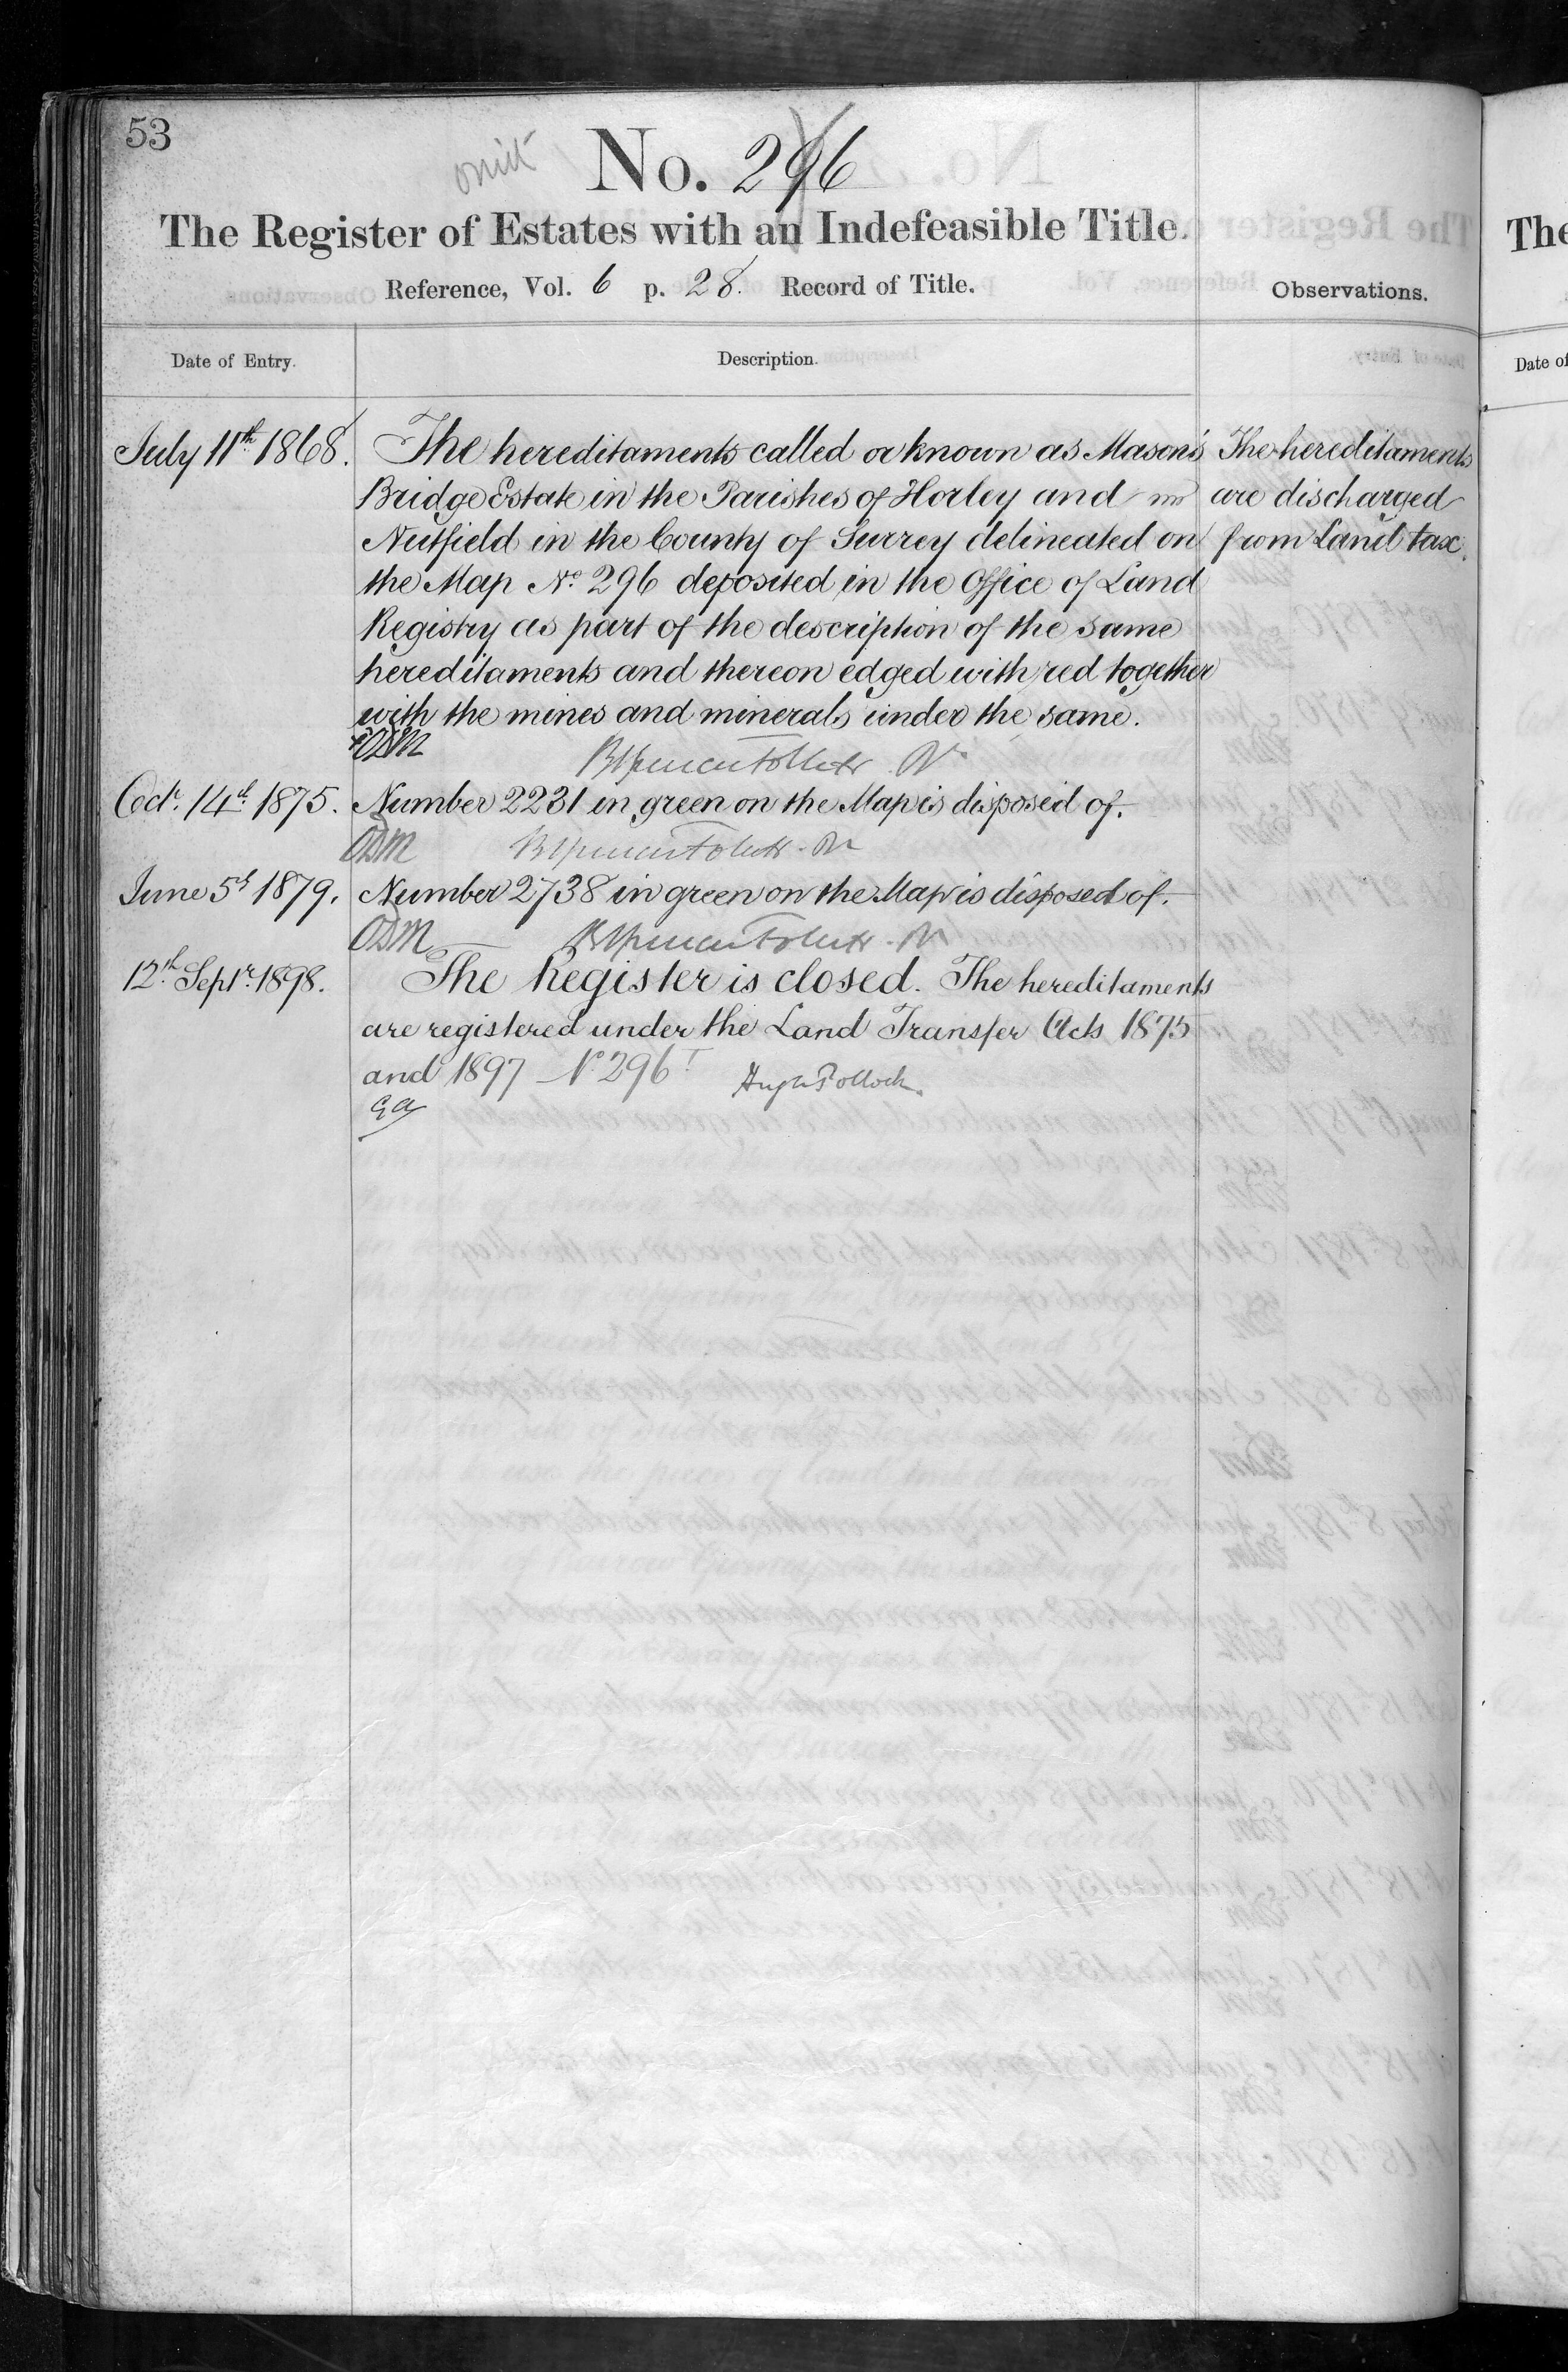 53
omit
No. 296
The Register of Estates with an Indefeasible Title.
Reference, Vol. 6 p. 28. Record of Title.
Observations.
Date of Entry.
Description.
July 11th 1868.
The hereditaments called or known as Mason's
Bridge Estate in the Parishes of Horley and
Nutfield in the County of Surrey delineated on
the Map No. 296 deposited in the Office of Land
Registry as part of the description of the same
hereditaments and thereon edged with red together
with the mines and minerals under the same.
The hereditaments
are discharged
from Land tax.
ODM
Octr. 14th 1875. Number 2231 in green on the Map is disposed of.
ODM
June 5th 1879. Number 2738 in green on the Map is disposed of.
ODM
12th Septr. 1898. The Register is closed. The hereditaments
are registered under the Land Transfer Acts 1875
and 1897 No 296 Hugh Pollock.
The
Date of